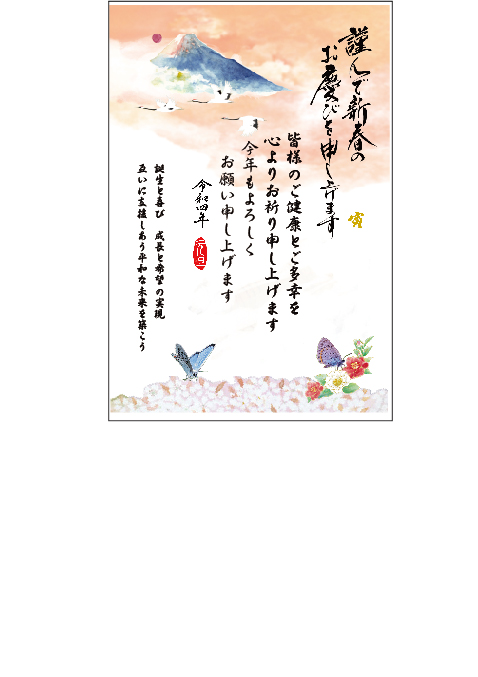 謹んで新春の
お慶びを申し上げます
寅
皆様のご健康とご多幸を
心よりお祈り申し上げます
今年もよろしく
お願い申し上げます
令和四年
元旦
誕生と喜び 成長と希望の実現
互いに支援しあう平和な未来を築こう